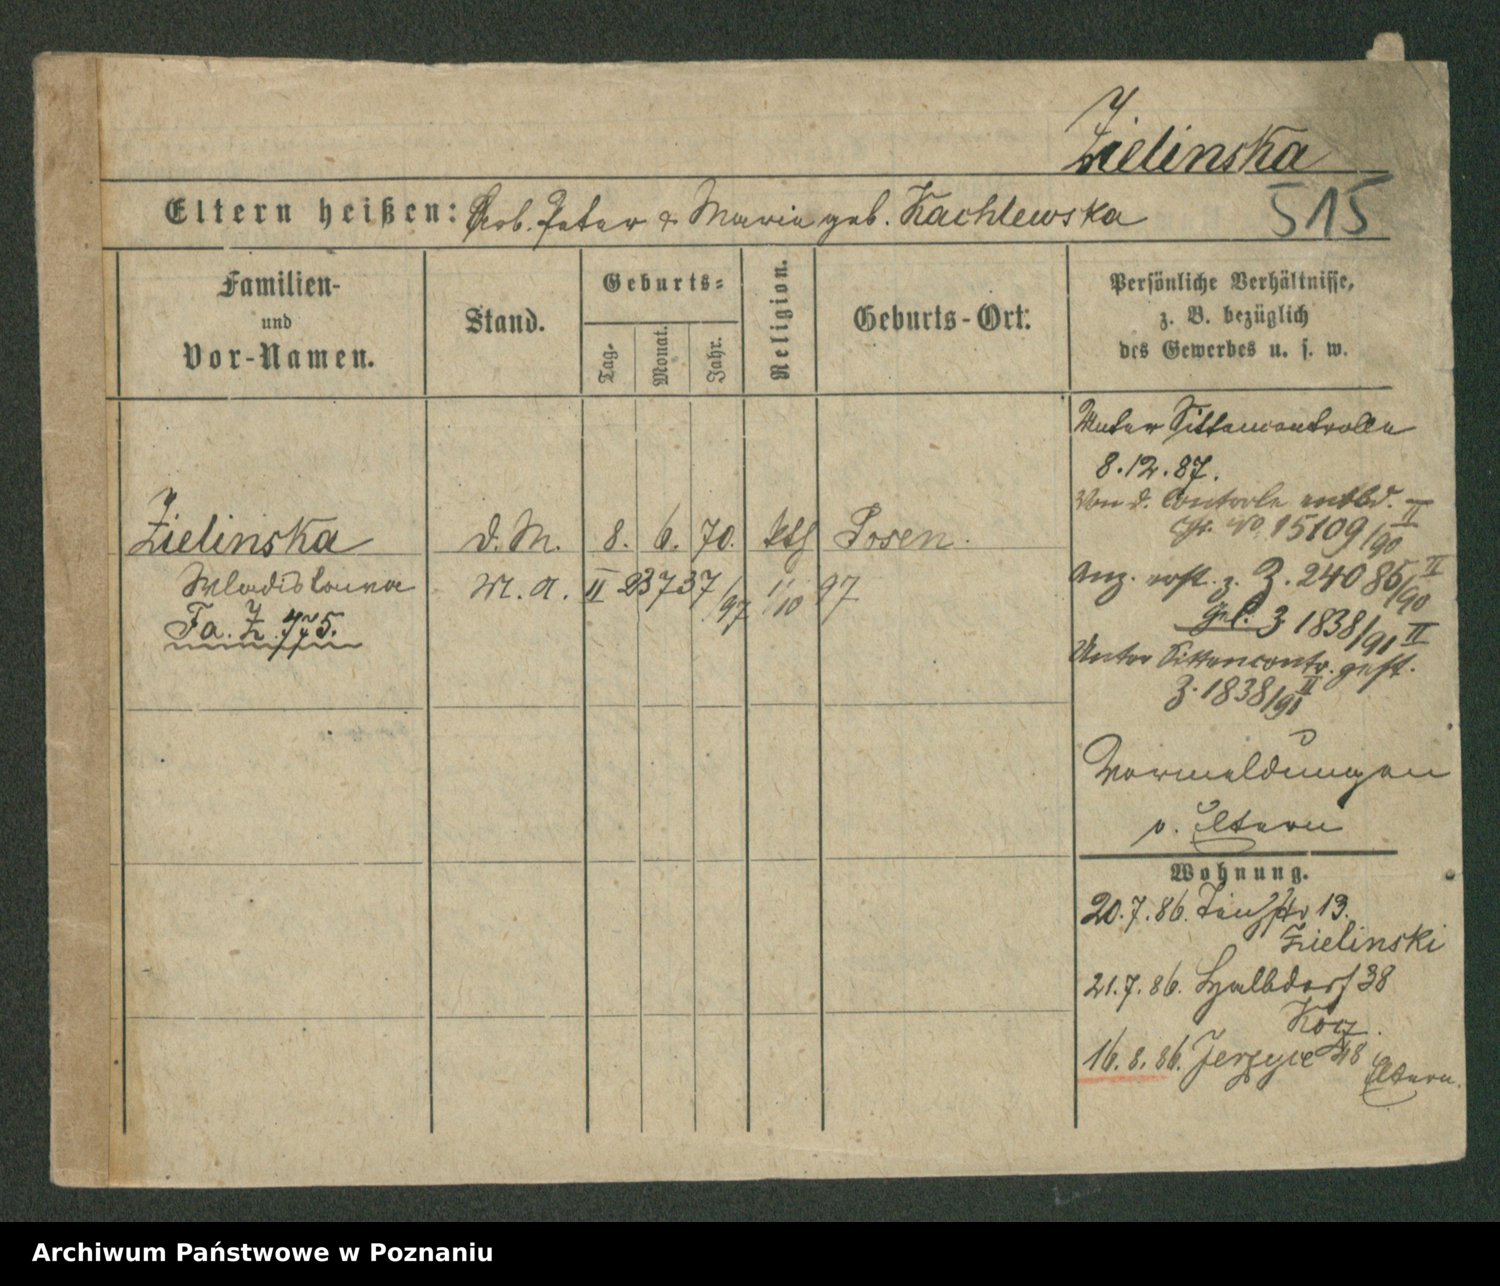 Zielinska
515
Eltern heißen: Arb. Peter & Maria geb. Kachlewska
Familien-
und
Vor-Namen.
Stand.
Geburts-
Tag.
Monat.
Jahr.
Religion.
Geburts-Ort.
Persönliche Verhältnisse,
z. B. bezüglich
des Gewerbes u. s. w.
Zielinska
d. M. 8. 6. 70. kth Posen.
Wladislawa
M. A. II 23737/97 1/10 97
Fa. Z. 475.
Unter Sittencontrolle
8.12.87.
Von d. Controle entbd. II
No 15109/90
Anz. erst. z. Z. 24085/90 II
gel. Z 1838/91 II
Unter Sittencontr. gest.
Z. 1838/91 II
Vormeldungen
v. Eltern
Wohnung.
20.7.86. 13.
Zielinski
21.7.86. Halbdorf 38
16.8.86. Jerzyce 48
Eltern.
Archiwum Państwowe w Poznaniu